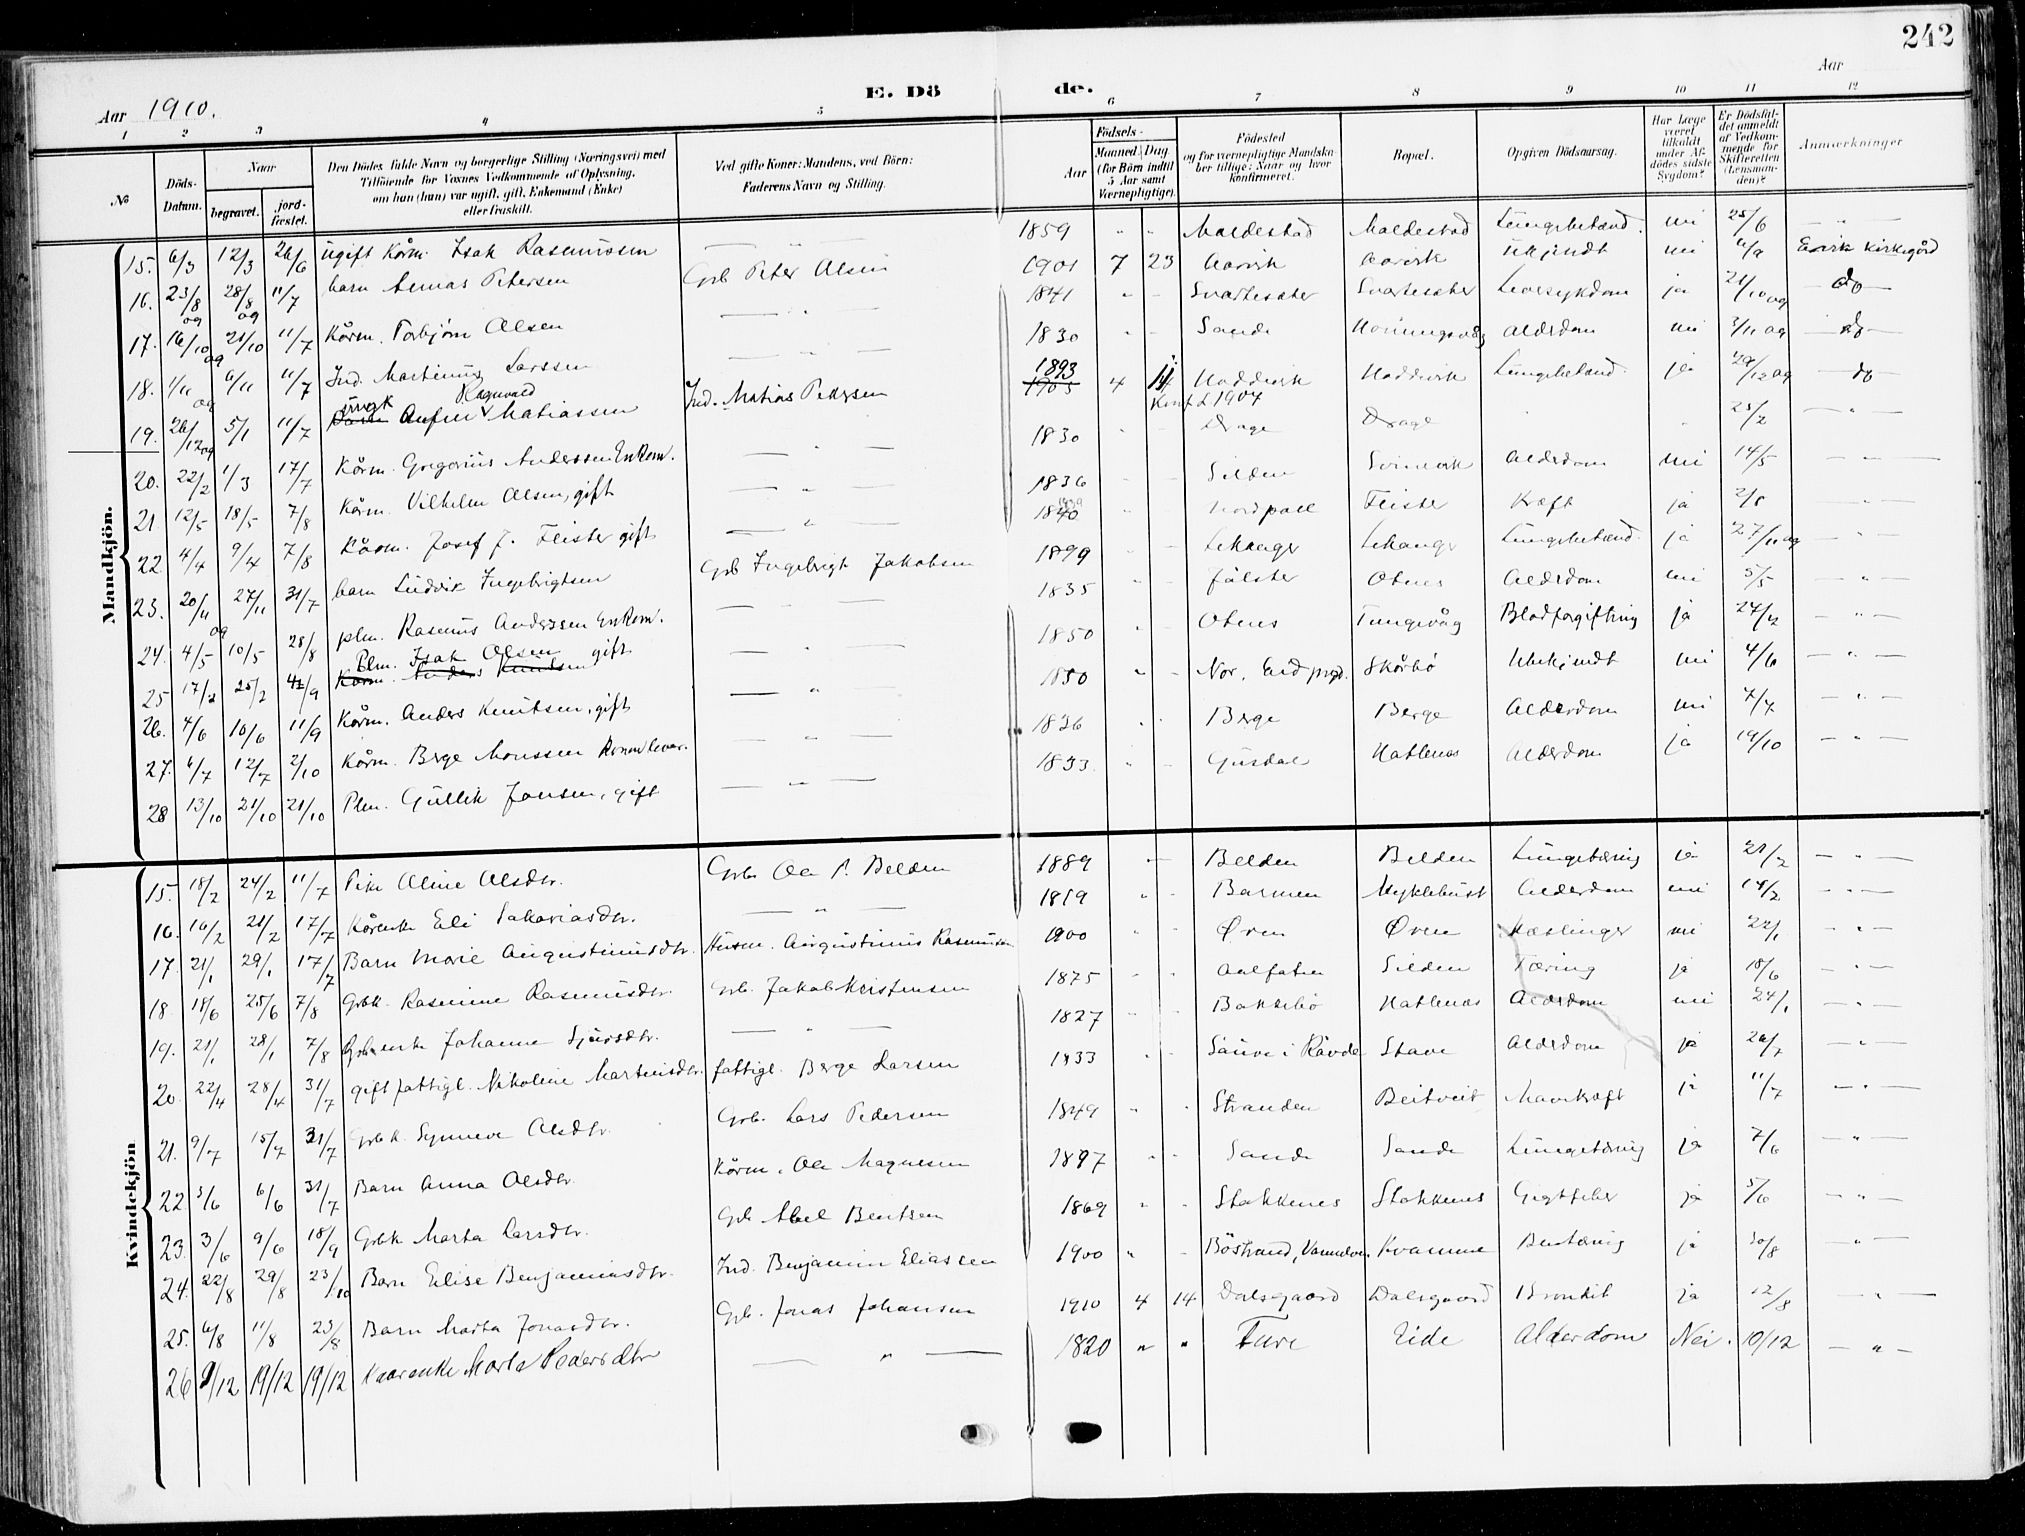 242
Aar 1910.
E. Dö de.
Aar
1 2 3 4 5 6 7 8 9 10 11 12
№
Döds-Datum.
Naar
begravet.
jord-fæstet.
Den Dödes fulde Navn og borgerlige Stilling (Næringsvei) med Tilföiende for Voxnes Vedkommende af Oplysning, om han (hun) var ugift, gift, Enkemand (Enke) eller fraskilt.
Ved gifte Koner: Mandens, ved Börn: Faderens Navn og Stilling.
Födsels-
Aar
Maaned. Dag. (for Börn indtil 5 Aar samt Værnepligtige).
Födested og for værnepligtige Mandskaber tillige: Naar og hvor konfirmeret.
Bopæl.
Opgiven Dödsaarsag.
Har Læge været tilkaldt under Afdödes sidste Sygdom?
Er Dödsfaldet anmeldt af Vedkommende for Skifteretten (Lensmanden)?
Anmærkninger
Mandkjön.
15. 6/3 12/3 26/6 ugift Kårm. Isak Rasmussen — " — 1859 " " Maldestad Maldestad Lungebetænd. nei 25/6 — " —
16. 23/8 og 28/8 og 11/7 barn Petersen Grb Peter Olsen 1901 7 23 Aarvik Aarvik ukjendt nei Ervik Kirkegård
17. 16/10 og 21/10 11/7 Kårm. Torbjørn Olsen — " — 1841 " - Svartesæter Svartesæter Leversykdom ja 21/10 og do
18. 1/11 og 6/11 11/7 Ind. Martinus Larssen — " — 1830 " - Sande Alderdom nei 3/11 og do
19. 26/12 og 5/1 11/7 ungk Ragnvald Matiassen Ind. Matias Pedersen 1893 4 Hoddevik Hoddevik Lungebetænd ja 29/12 og do
Konf. 1907
20. 22/2 1/3 17/7 Kårm. Gregorius Anderssen Enkem. — " — 1830 " - Drage Drage 25/2 — " —
21. 12/5 18/5 7/8 Kårm. Vilhelm Olsen, gift — " — 1836 - - Silden Alderdom nei 14/5 — " —
22. 4/4 9/4 7/8 Kårm. Josef J. Fleister gift — " — 1840 " - Nordpoll Kræft ja — " —
23. 20/11 og 27/11 31/7 barn Ludvik Ingebrigtsen Grb Ingebrigt Jakobsen 1899 - - Lekanger Lekanger Lungebetænd. ja 27/11 og — " —
24. 4/5 10/5 28/8 plm. Rasmus Anderssen Enkem. — " — 1835 " - Jølster Otnes Alderdom nei 5/5 — " —
25 17/2 25/2 Plm. Isak Olsen gift — " — 1850 " - Otnes Tungevåg Blodforgiftning ja — " —
Kårm. Anders Knudsen
26. 4/6 10/6 11/9 Kårm. Anders Knutsen, gift — " — 1850 " - Nor, Eid prgd. Skårbø Ubekjendt nei 4/6 — " —
27. 6/7 12/7 2/10 Kårm. Berge Monssen — " — 1836 " " Berge Berge Alderdom nei 7/7 — " —
28 13/10 21/10 21/10 Plm. Gullik Jonsen, gift — " — 1833 " - Gusdal Hatlenes Alderdom ja 19/10 — " —
Kvindekjön
15. 18/2 24/2 11/7 Pike Oline Olsdtr. Grb. Ole P. Belden 1889 " — Belden Belden Lungetæring ja 21/2 — " —
16. 16/2 21/2 17/7 Kårenke Eli Sakariasdtr. — " — 1819 " - Barmen Myklebust Alderdom nei 18/2 — " —
17. 21/1 29/1 17/7 Barn Marie Augustinusdtr. Husm. Augustinus Rasmussen 1900 " - Øren Øren Mæslinger nei 22/1 — " —
18. 18/6 25/6 7/8 Grbk. Rasmine Rasmusdtr. Grb. Jakob Kristensen 1875 " " Silden Tæring ja 18/6 — " —
19. 21/1 28/1 7/8 Grb.enke Johanne Sjursdtr. — " — 1827 " - Bakkebø Hatlenes Alderdom nei 24/1 — " —
20. 22/4 28/4 31/7 gift fattigl. Nikoline Martinsdtr. fattigl. Berge Larsen 1833 " - Stave Alderdom ja 26/7 — " —
21. 9/7 15/7 31/7 Grbk. Synneve Olsdtr. Grb. Lars Pedersen 1849 " " Stranden Beitveit Mavekræft ja 11/7 — " —
22. 3/6 6/6 31/7 Barn Anna Olsdtr. Kårm. Ole Magnesen 1897 " " Sande Sande Lungetæring ja 7/6 — " —
23. 3/6 9/6 18/9 Grbk Marta Larsdtr. Grb Abel Bentsen 1869 " " Stokkenes Stokkenes Gigtfeber ja 5/6 — " —
24. 22/8 29/8 23/10 Barn Elise Benjaminsdtr. Ind. Benjamin Eliassen 1900 " - Böstrand, Vannelven Kvamme Bentæring ja 30/8 — " —
25. 6/8 11/8 23/8 Barn Marta Jonasdtr. Grb. Jonas Johansen 1910 4 14 Dalsgaard Dalsgaard Bronkit ja 12/8 — " —
26 9/12 19/12 19/12 Kaarenke Marte Pedersdtr — " — 1820 " " Fure Eide Alderdom Nei. 10/12 — " —